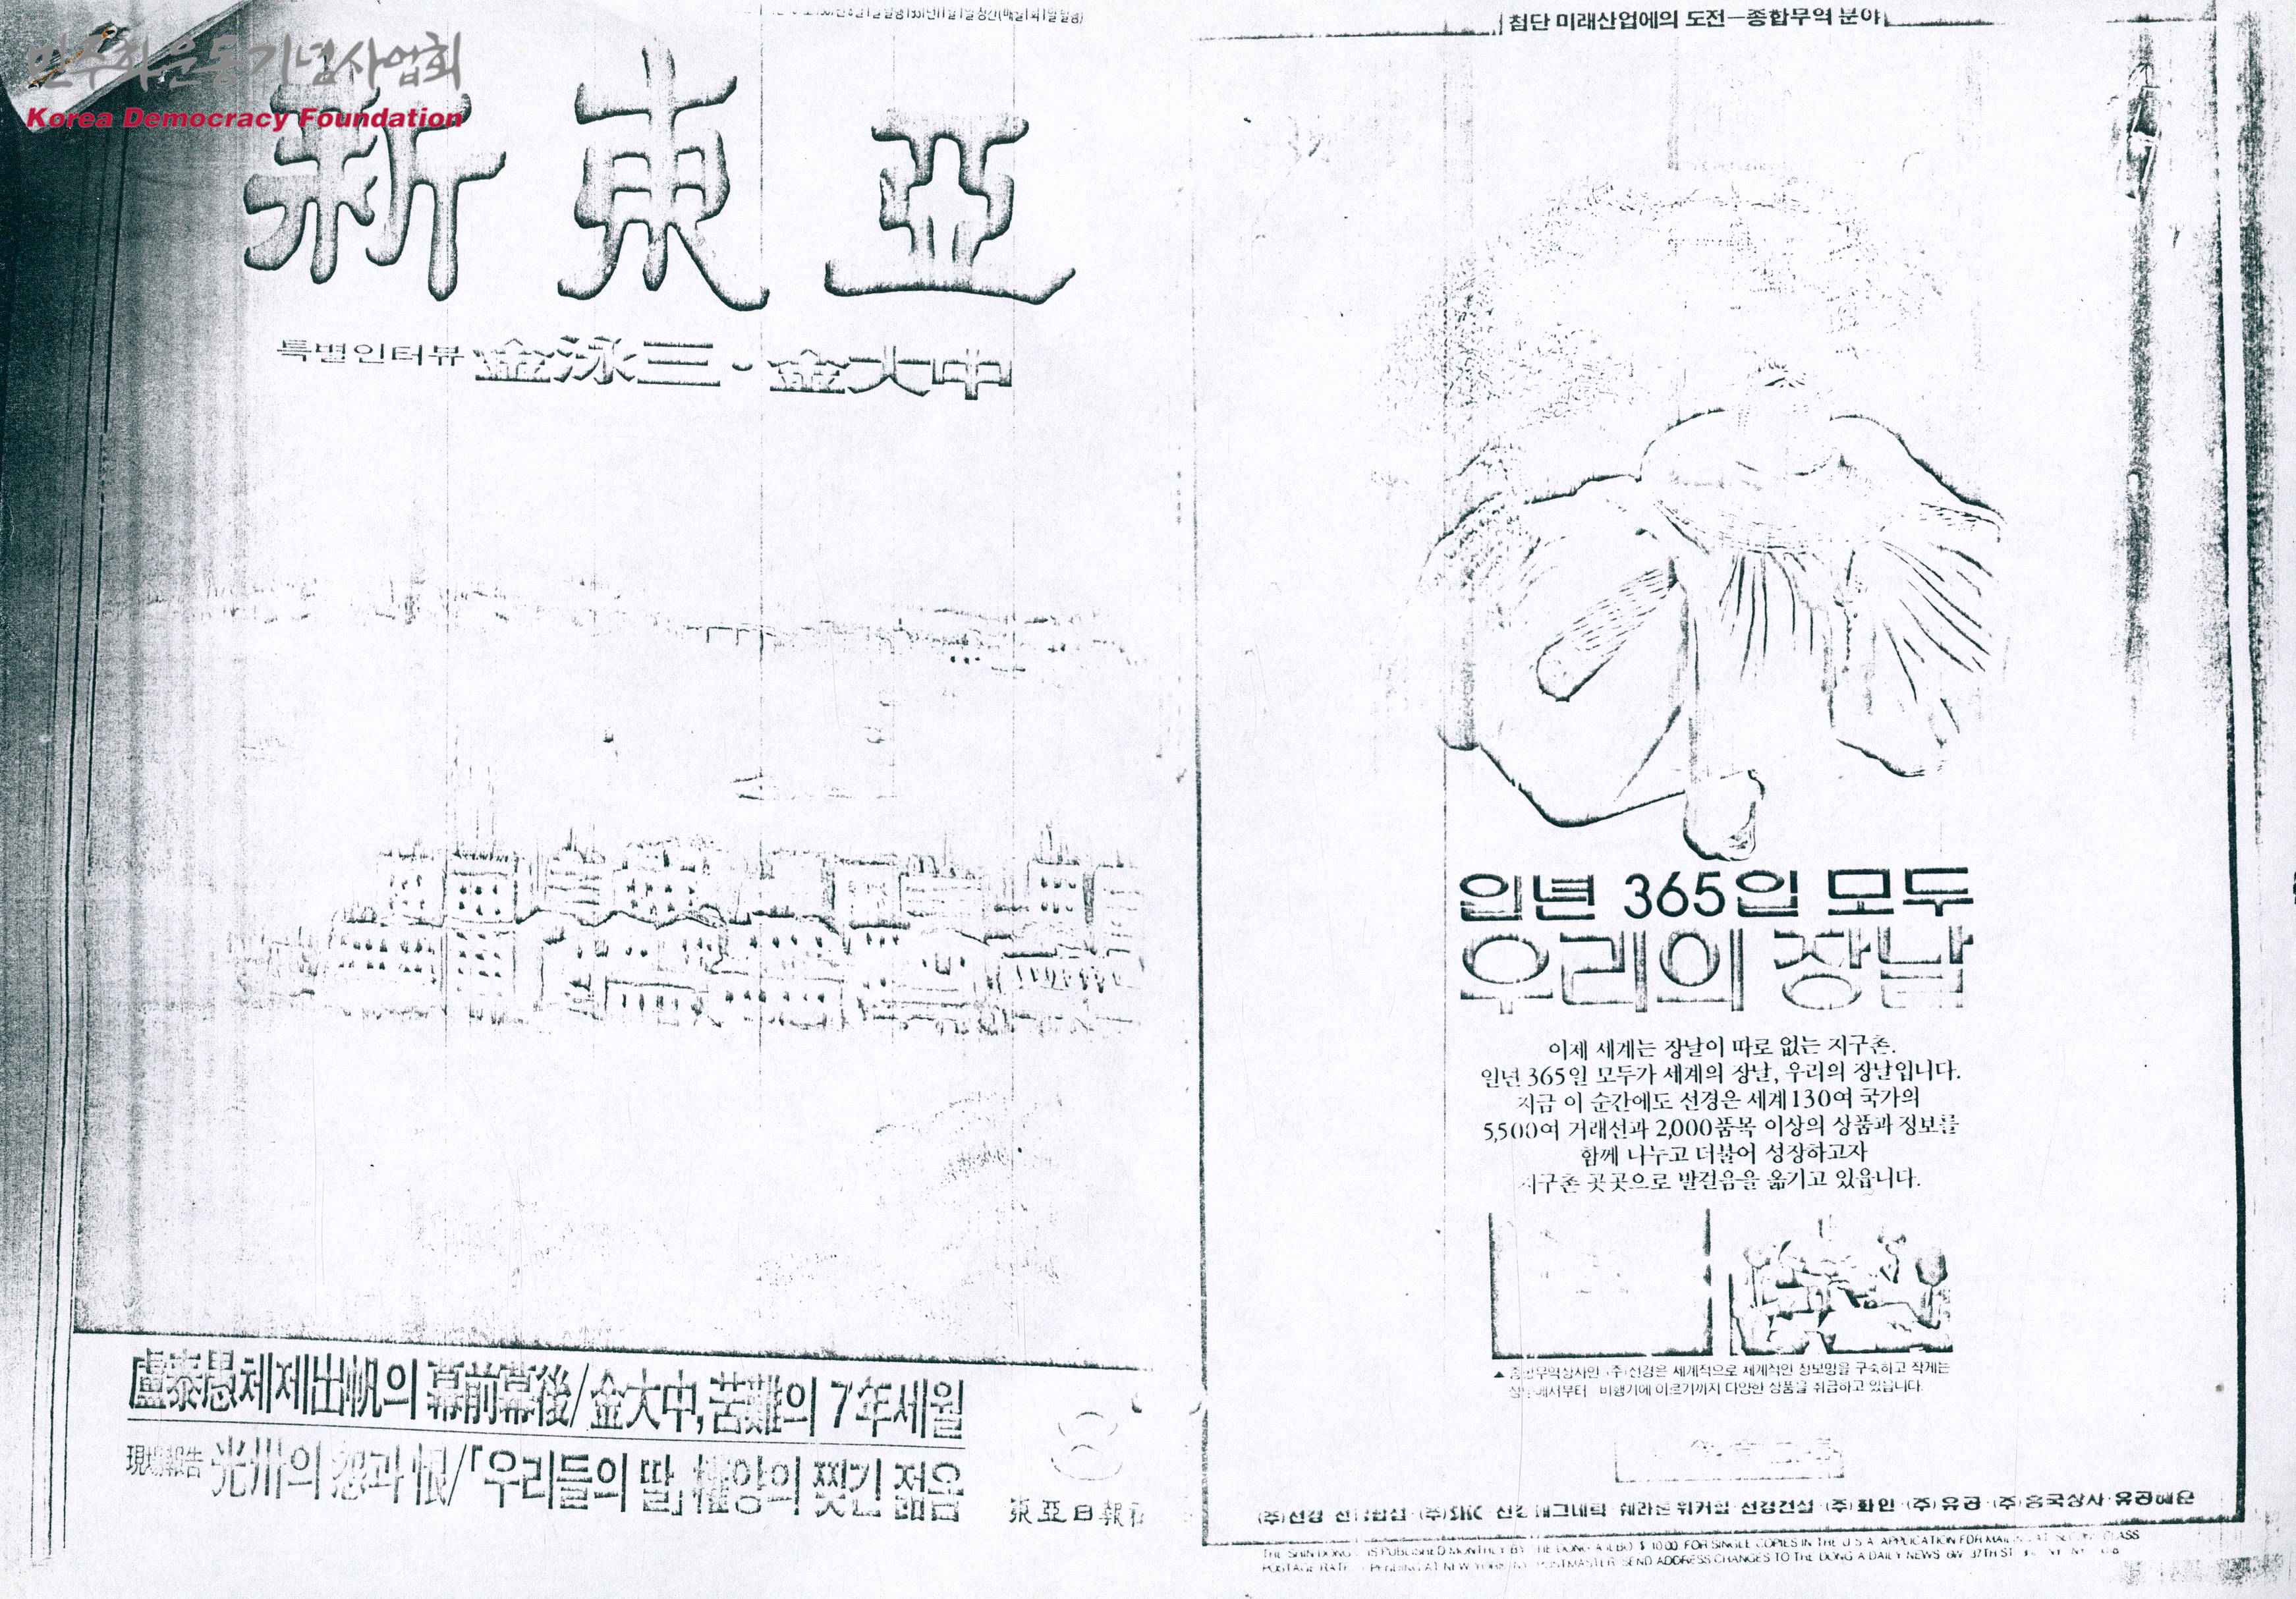 민주화운동기념사업회
Korea Democracy Foundation
新東亞
특별인터뷰 金泳三·金大中
盧泰愚체제出帆의 幕前幕後/金大中,苦難의 7年세월
現場報告 光州의 怨과 恨/「우리들의 딸」權양의 찢긴 젊음
8
東亞日報社
첨단 미래산업에의 도전—종합무역 분야
일년 365일 모두
우리의 장날
이제 세계는 장날이 따로 없는 지구촌.
일년 365일 모두가 세계의 장날, 우리의 장날입니다.
지금 이 순간에도 선경은 세계 130여 국가의
5,500여 거래선과 2,000품목 이상의 상품과 정보를
함께 나누고 더불어 성장하고자
지구촌 곳곳으로 발걸음을 옮기고 있읍니다.
▲ 종합무역상사인 (주)선경은 세계적으로 세계적인 정보망을 구축하고 작게는
비행기에 이르기까지 다양한 상품을 취급하고 있읍니다.
(주)선경 (주)SKC 선경매그네틱 쉐라톤 워커힐·선경건설·(주)화인·(주)유공·(주)흥국상사·유공해운
IS PUBLISHED MONTHLY BY THE DONG-A ILBO $ 10.00 FOR SINGLE COPIES IN THE U S A APPLICATION FOR CLASS
POSTAGE RATE PENDING AT NEW YORK POSTMASTER SEND ADDRESS CHANGES TO THE DONG A DAILY NEWS 37TH ST